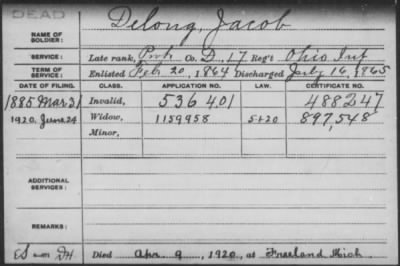 DEAD
NAME OF SOLDIER: Delong, Jacob
SERVICE: Late rank, Prvt Co. D, 17 Reg't Ohio Inf
TERM OF SERVICE: Enlisted Feb 20, 1864 Discharged July 16, 1865
DATE OF FILING. CLASS. APPLICATION NO. LAW. CERTIFICATE NO.
1885 Mar 31 Invalid, 536401 488247
1920, June 24 Widow, 1159958 5-1-20 897,548
Minor,
ADDITIONAL SERVICES:
REMARKS:
Died Apr 9, 1920, at Freeland Mich